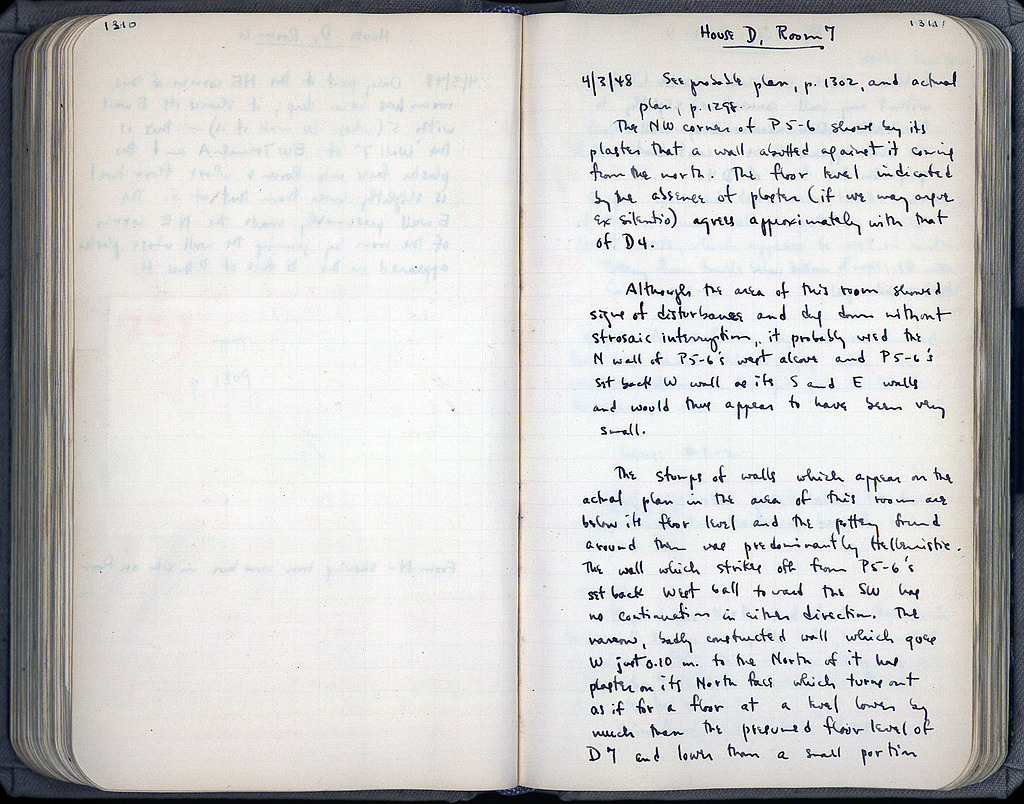 1310
1311
House D, Room 7
4/3/48 See probable plan, p. 1302, and actual
plan, p. 1298.
The NW corner of P5-6 shows by its
plaster that a wall abutted against it coming
from the north. The floor level indicated
by the absence of plaster (if we may argue
ex silentio) agrees approximately with that
of D4.
Although the area of this room showed
signs of disturbance and dug down without
strosaic interruption, it probably used the
N wall of P5-6's west alcove and P5-6's
set back W wall as its S and E walls
and would thus appear to have been very
small.
The stumps of walls which appear on the
actual plan in the area of this room are
below its floor level and the pottery found
around them was predominantly Hellenistic.
The wall which strikes off from P5-6's
set back West ball toward the SW has
no continuation in either direction. The
narrow, badly constructed wall which goes
W just 0.10 m. to the North of it has
plaster on its North face which turns out
as if for a floor at a level lower by
much than the presumed floor level of
D7 and lower than a small portion